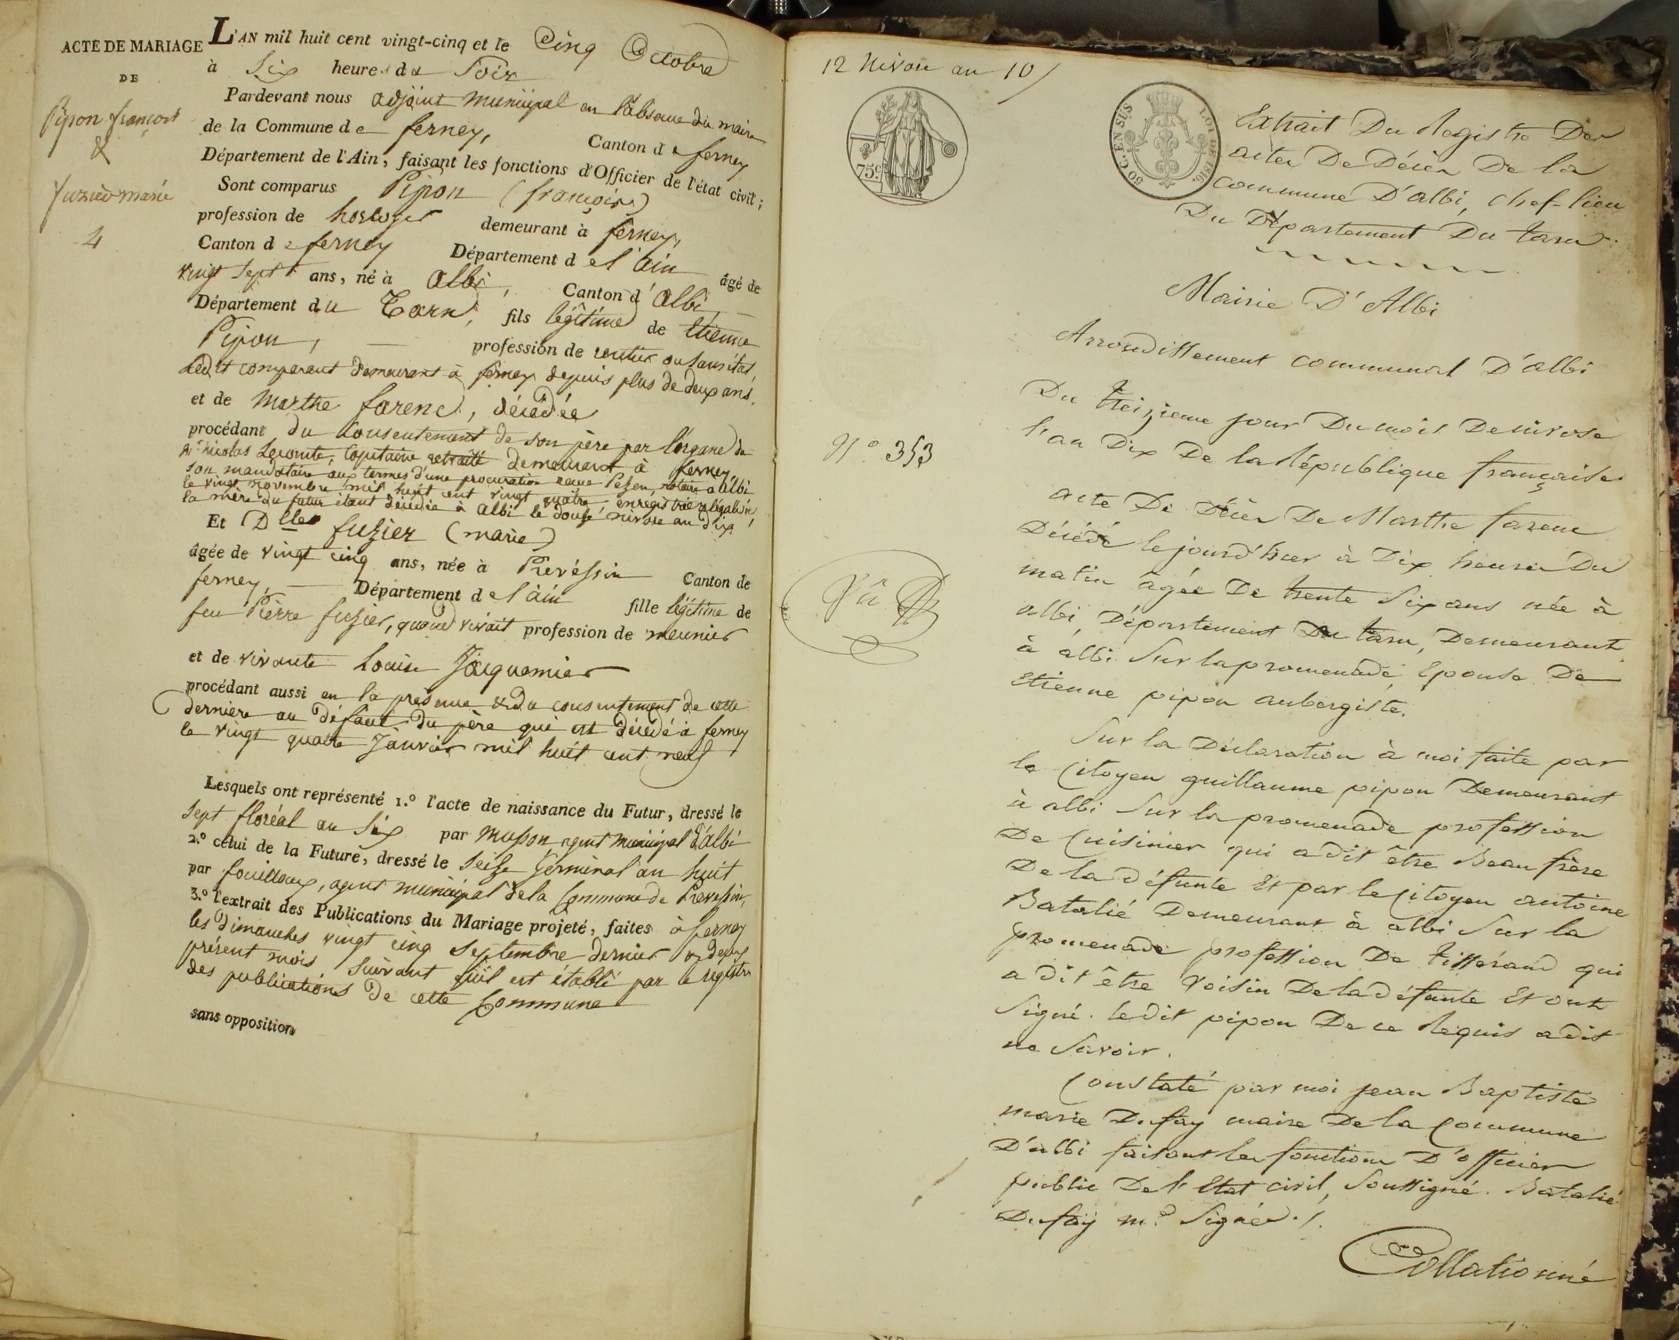 ACTE DE MARIAGE
DE
Pipon françois
&
fuzier marie
4
L'AN mil huit cent vingt-cinq et le Cinq Octobre
à Six heures du Soir
Pardevant nous adjoint municipal en l'absence du maire
de la Commune de ferney, Canton de ferney
Département de l'Ain, faisant les fonctions d'Officier de l'état civil;
Sont comparus Pipon (françois)
profession de horloger demeurant à ferney,
Canton de ferney Département de l'ain âgé de
vingt sept ans, né à Albi, Canton d'Albi
Département du Tarn, fils légitime de Etienne
Pipon, profession de rentier ou sans état,
ledit comparant demeurant à ferney depuis plus de deux ans.
et de Marthe farenc, décédée
procédant du Consentement de son père par l'organe de
Mr nicolas Lecomte, Capitaine retraité demeurant à ferney
son mandataire aux termes d'une procuration notaire à albi
le vingt novembre mil huit cent vingt quatre enregistrée & légalisée
la mère du futur étant décédée à Albi le douze nivose an dix
Et Dlle fuzier (marie)
âgée de vingt cinq ans, née à Prevéssin Canton de
ferney, Département de l'ain fille légitime de
feu Pierre fuzier, quand vivait profession de meunier
et de vivante Louise Jacquemier
procédant aussi en la présence & du consentement de cette
dernière au défaut du père qui est décédé à ferney
le vingt quatre Janvier mil huit cent neuf
Lesquels ont représenté 1.º l'acte de naissance du Futur, dressé le
sept floréal an Six par Masson agent municipal d'Albi
2.º celui de la Future, dressé le seize Germinal an huit
par fouilloux, agent municipal de la Commune de Prevessin,
3.º l'extrait des Publications du Mariage projeté, faites à ferney
les dimanches vingt cinq septembre dernier & deux
présent mois, suivant qu'il est établi par le registre
des publications de cette Commune
sans opposition
12 Nivose an 10
75c
50 C. EN SUS
LOI DE 1816.
Extrait Du Registre Des
actes De Décès De la
commune D'albi, chef-lieu
Du Département Du tarn.
Mairie D'Albi
Arrondissement communal D'albi
Du treizieme jour Du mois De nivose
l'an Dix De la République française
Nº 353
acte De Décès De Marthe farenc
Décédé le jourd'hier à Dix heures Du
matin agée De trente Six ans née à
albi, Département Du tarn, Demeurant
à albi Sur la promenade, Epouse De
Etienne pipon aubergiste.
Vû
Sur la Déclaration à moi faite par
le Citoyen guillaume pipon Demeurant
à albi Sur la promenade profession
De Cuisinier qui a dit être Beau frère
De la défunte Et par le Citoyen antoine
Batalié Demeurant à albi Sur la
promenade profession De tisserand qui
a dit être Voisin De la défunte Et ont
Signé. ledit pipon De ce Requis a dit
ne Savoir.
Constaté par moi jean Baptiste
marie Dufay maire De la Commune
D'albi faisant les fonctions D'officier
public De l'Etat civil, Soussigné. Batalié
Dufay m.e Signés./.
Collationné